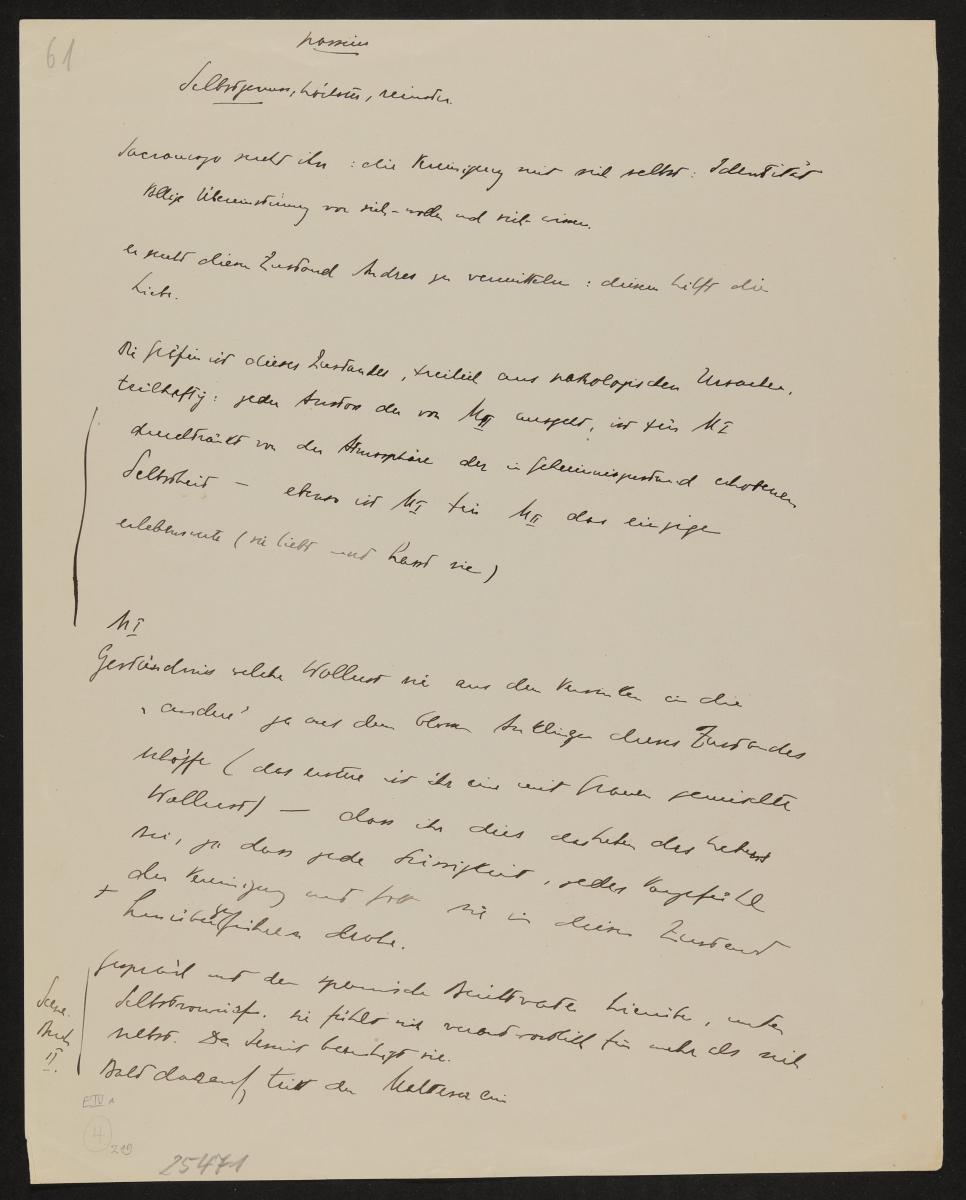 61
passim
Selbstgenuss, höchster, reinster.
Sacramozo sucht ihn : die Vereinigung mit sich selbst : Identität
völlige Übereinstimmung von sich-wollen und sich-wissen.
er sucht diesen Zustand Andres zu vermitteln : diesem hilft die
Liebe.
Die Gräfin ist dieses Zustandes, freilich aus pathologischen Ursachen,
teilhaftig: jeder Anstoss der von M II ausgeht, ist für M I
durchtränkt von der Atmosphäre der in Geheimniszustand erhobenen
Selbstheit — ebenso ist M I für M II das einzige
erlebenswerte (sie liebt und hasst sie)
M I
Geständnis welche Wollust sie aus dem Versinken in die
„andere" ja aus dem blossen Anklingen dieses Zustandes
schöpfe (das erstere ist ihr eine mit Grauen gemischte
Wollust) — dass ihr dies das Leben des Lebens
sei, ja dass jede Süssigkeit, jedes Vorgefühl
der Vereinigung mit Gott sie in diesen Zustand
+ hinüberzuführen drohe.
Gespräch mit dem spanischen Beichtvater hierüber, unter
Selbstvorwürf. sie fühlt sich verantwortlich für mehr als sich
selbst. Der Jesuit beruhigt sie.
Bald darauf, tritt der Malteser ein
Buch
II.
E IV 1
4
219
25471